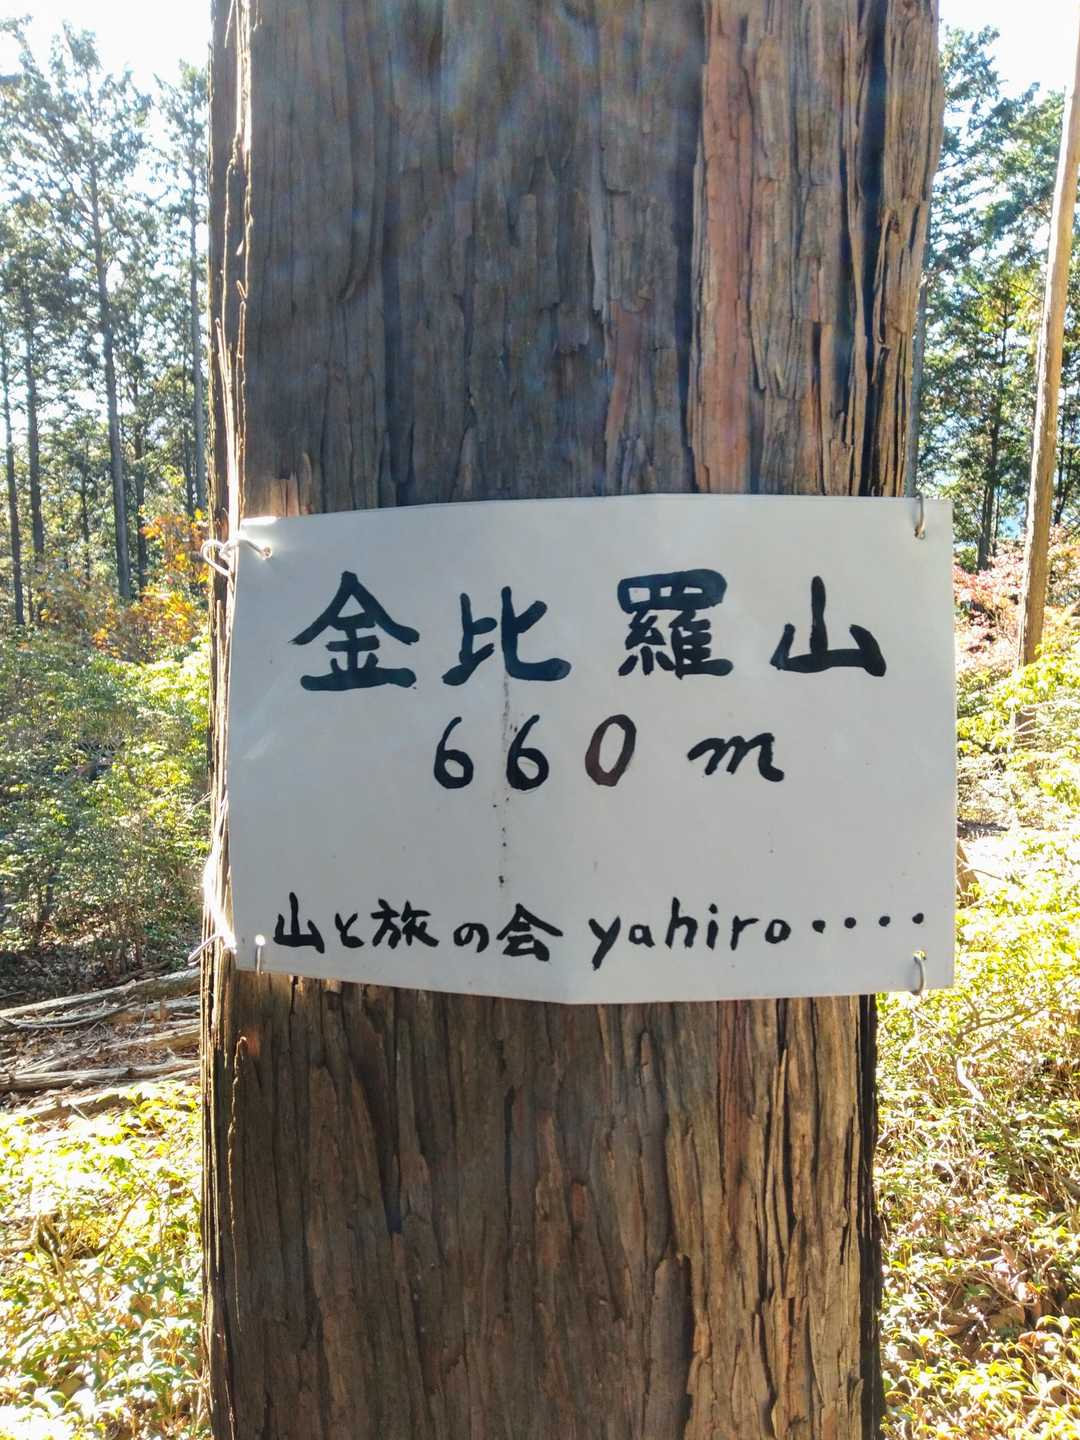 金比羅山
660 m
山と旅の会 yahiro・・・・